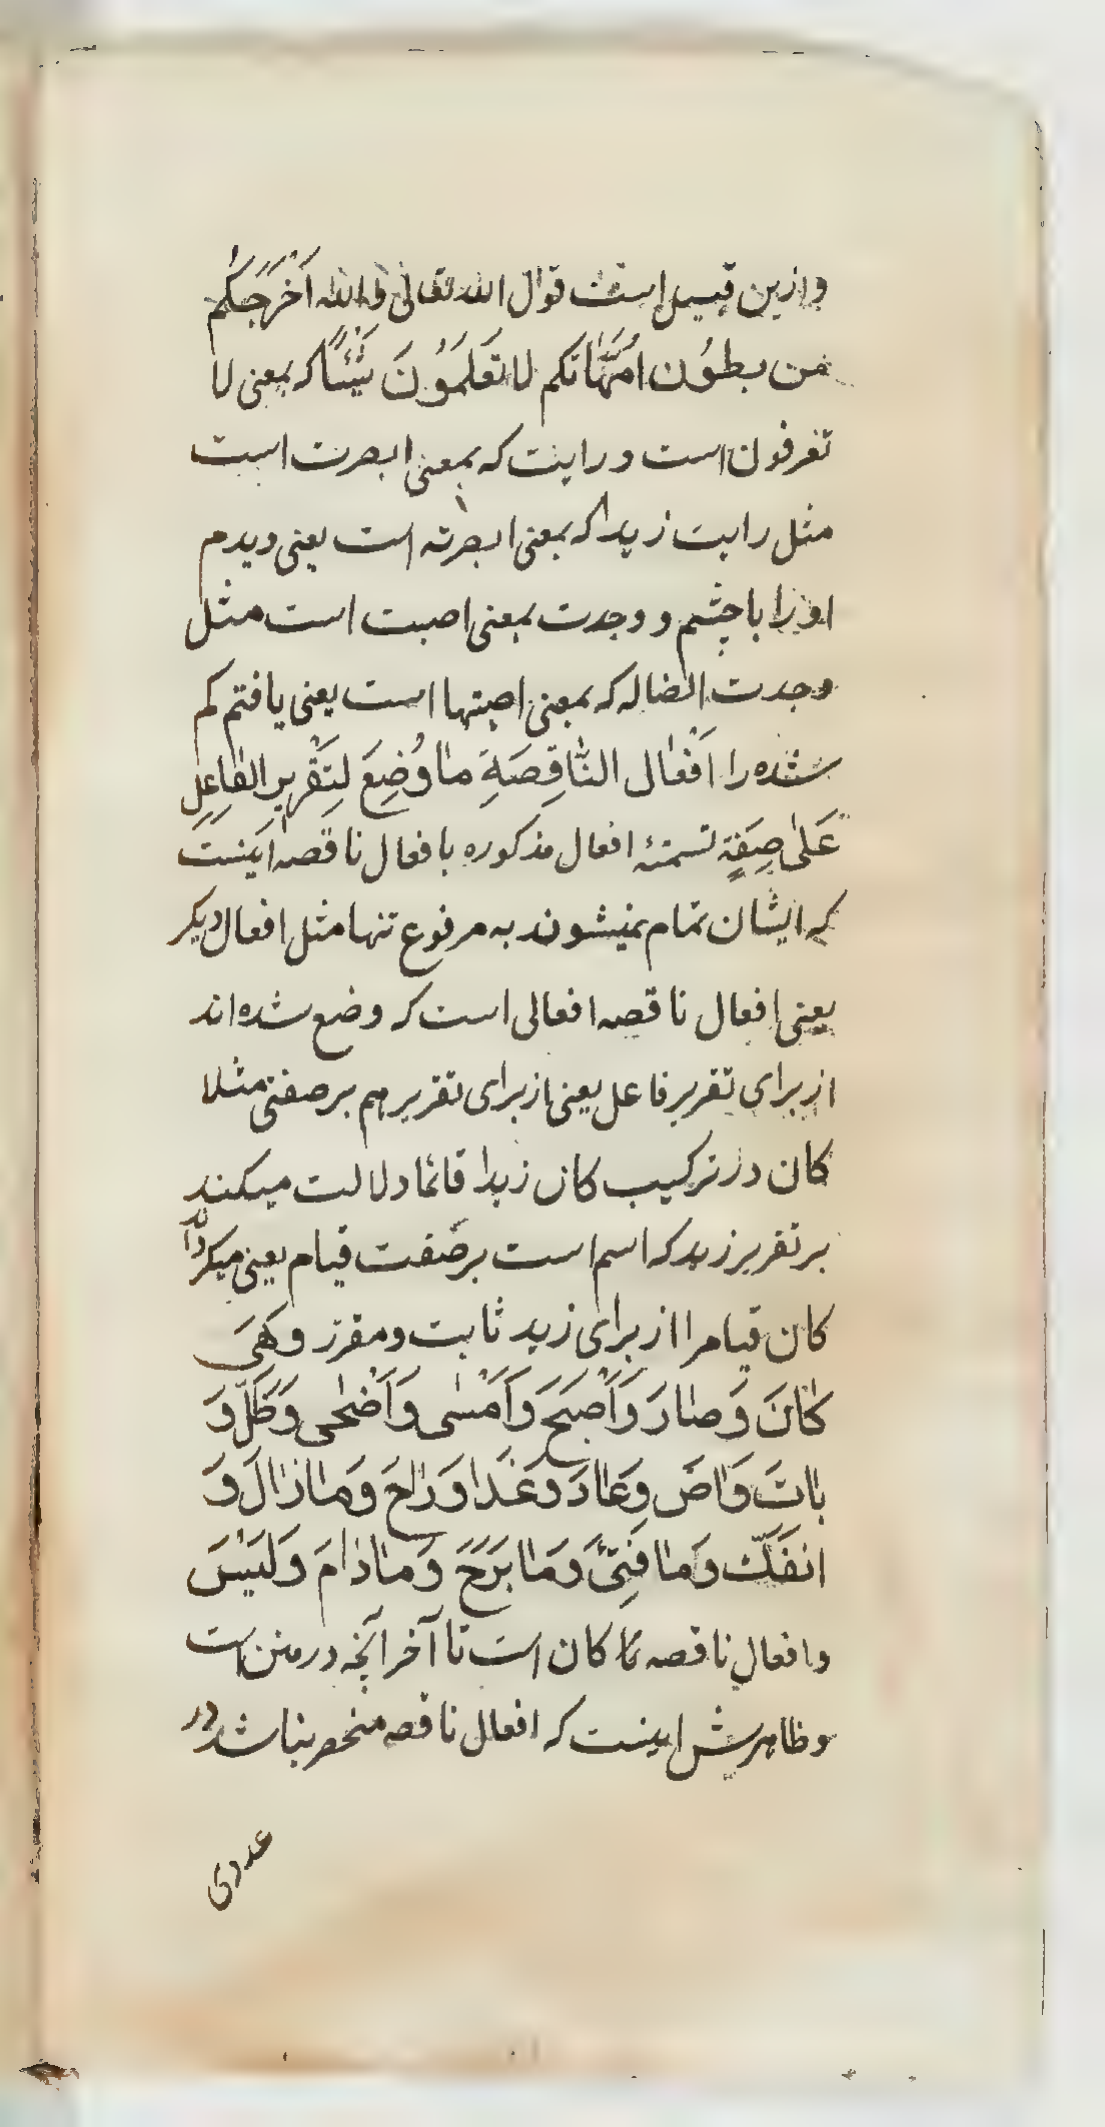 وازین قبیل است قوال الله تعالی والله اَخْرَجَكُم
من بطوُن امَُّهاتكم لا تَعلَموُنَ شَیْئًا كه بمعنی لا
تعرفون است و رایت كه بمعنی ابصرت است
مثل رایت زیدا كه بمعنی ابصرته است یعنی دیدم
اورا با چشم و وجدت بمعنی اصبت است مثل
وجدت الضاله كه بمعنی اصبتها است یعنی یافتم كم
شده را اَفْعال النّاقِصَةِ ما وُضِعَ لِتَقْریرِ الفاعِلِ
عَلی صِفَةٍ تسمیۀ افعال مذكوره بافعال ناقصه اینست
كه ایشان تمام نمیشوند به مرفوع تنها مثل افعال دیكر
یعنی افعال ناقصه افعالی است كه وضع شده اند
از برای تقریر فاعل یعنی از برای تقریر هم بر صفتی مثلا
كان در تركیب كان زیدا قائما دلالت میكند
بر تقریر زید كه اسم است بر صفت قیام یعنی میكرداند
كان قیامرا از برای زید ثابت و مقرر و هَیَ
كانَ وَصارَ وَاَصْبَحَ وَاَمْسٰی وَاَضْحی وَظَلَّ وَ
باتَ وَاضَ وَعادَ وَغَدا وَراحَ وَمازالَ وَ
انفَكَّ وَما فَتِئَ وَما بَرَحَ وَمادامَ وَلَیْسَ
وافعال ناقصه كان است تا آخر آنچه در متن است
و ظاهرش اینست كه افعال ناقصه منحصر نباشد در
عددی